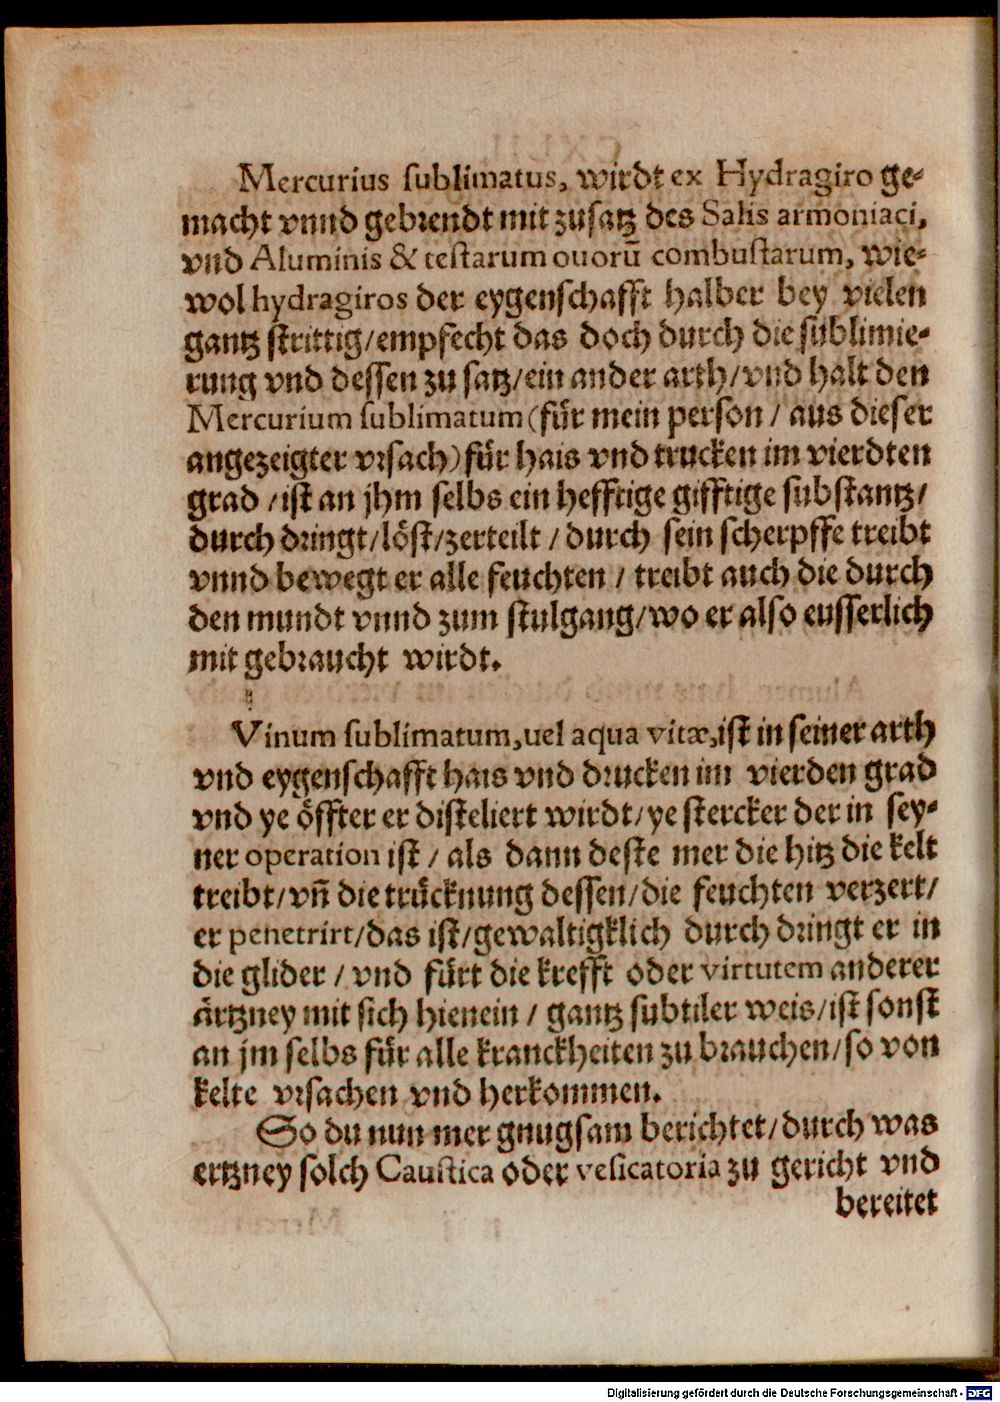 Mercurius sublimatus, wirdt ex Hydragiro ge-
macht vnnd gebrendt mit zusatz des Salis armoniaci,
vnd Aluminis & testarum ouorū combustarum, wie-
wol hydragiros der eygenschafft halber bey vielen
gantz strittig/empfecht das doch durch die sublimie-
rung vnd dessen zu satz/ein ander arth/vnd halt den
Mercurium sublimatum (für mein person / aus dieser
angezeigter vrsach) für hais vnd trucken im vierdten
grad /ist an jhm selbs ein hefftige gifftige substantz/
durch dringt/löst/zerteilt / durch sein scherpffe treibt
vnnd bewegt er alle feuchten / treibt auch die durch
den mundt vnnd zum stulgang/wo er also eusserlich
mit gebraucht wirdt.
Vinum sublimatum, uel aqua vitæ, ist in seiner arth
vnd eygenschafft hais vnd drucken im vierden grad
vnd ye öffter er disteliert wirdt/ye stercker der in sey-
ner operation ist / als dann deste mer die hitz die kelt
treibt/vn̄ die trücknung dessen/die feuchten verzert/
er penetrirt/das ist/gewaltigklich durch dringt er in
die glider / vnd fürt die krefft oder virtutem anderer
ärtzney mit sich hienein / gantz subtiler weis/ist sonst
an jm selbs für alle kranckheiten zu brauchen/so von
kelte vrsachen vnd herkommen.
So du nun mer gnugsam berichtet/durch was
ertzney solch Caustica oder vesicatoria zu gericht vnd
bereitet
Digitalisierung gefördert durch die Deutsche Forschungsgemeinschaft - DFG